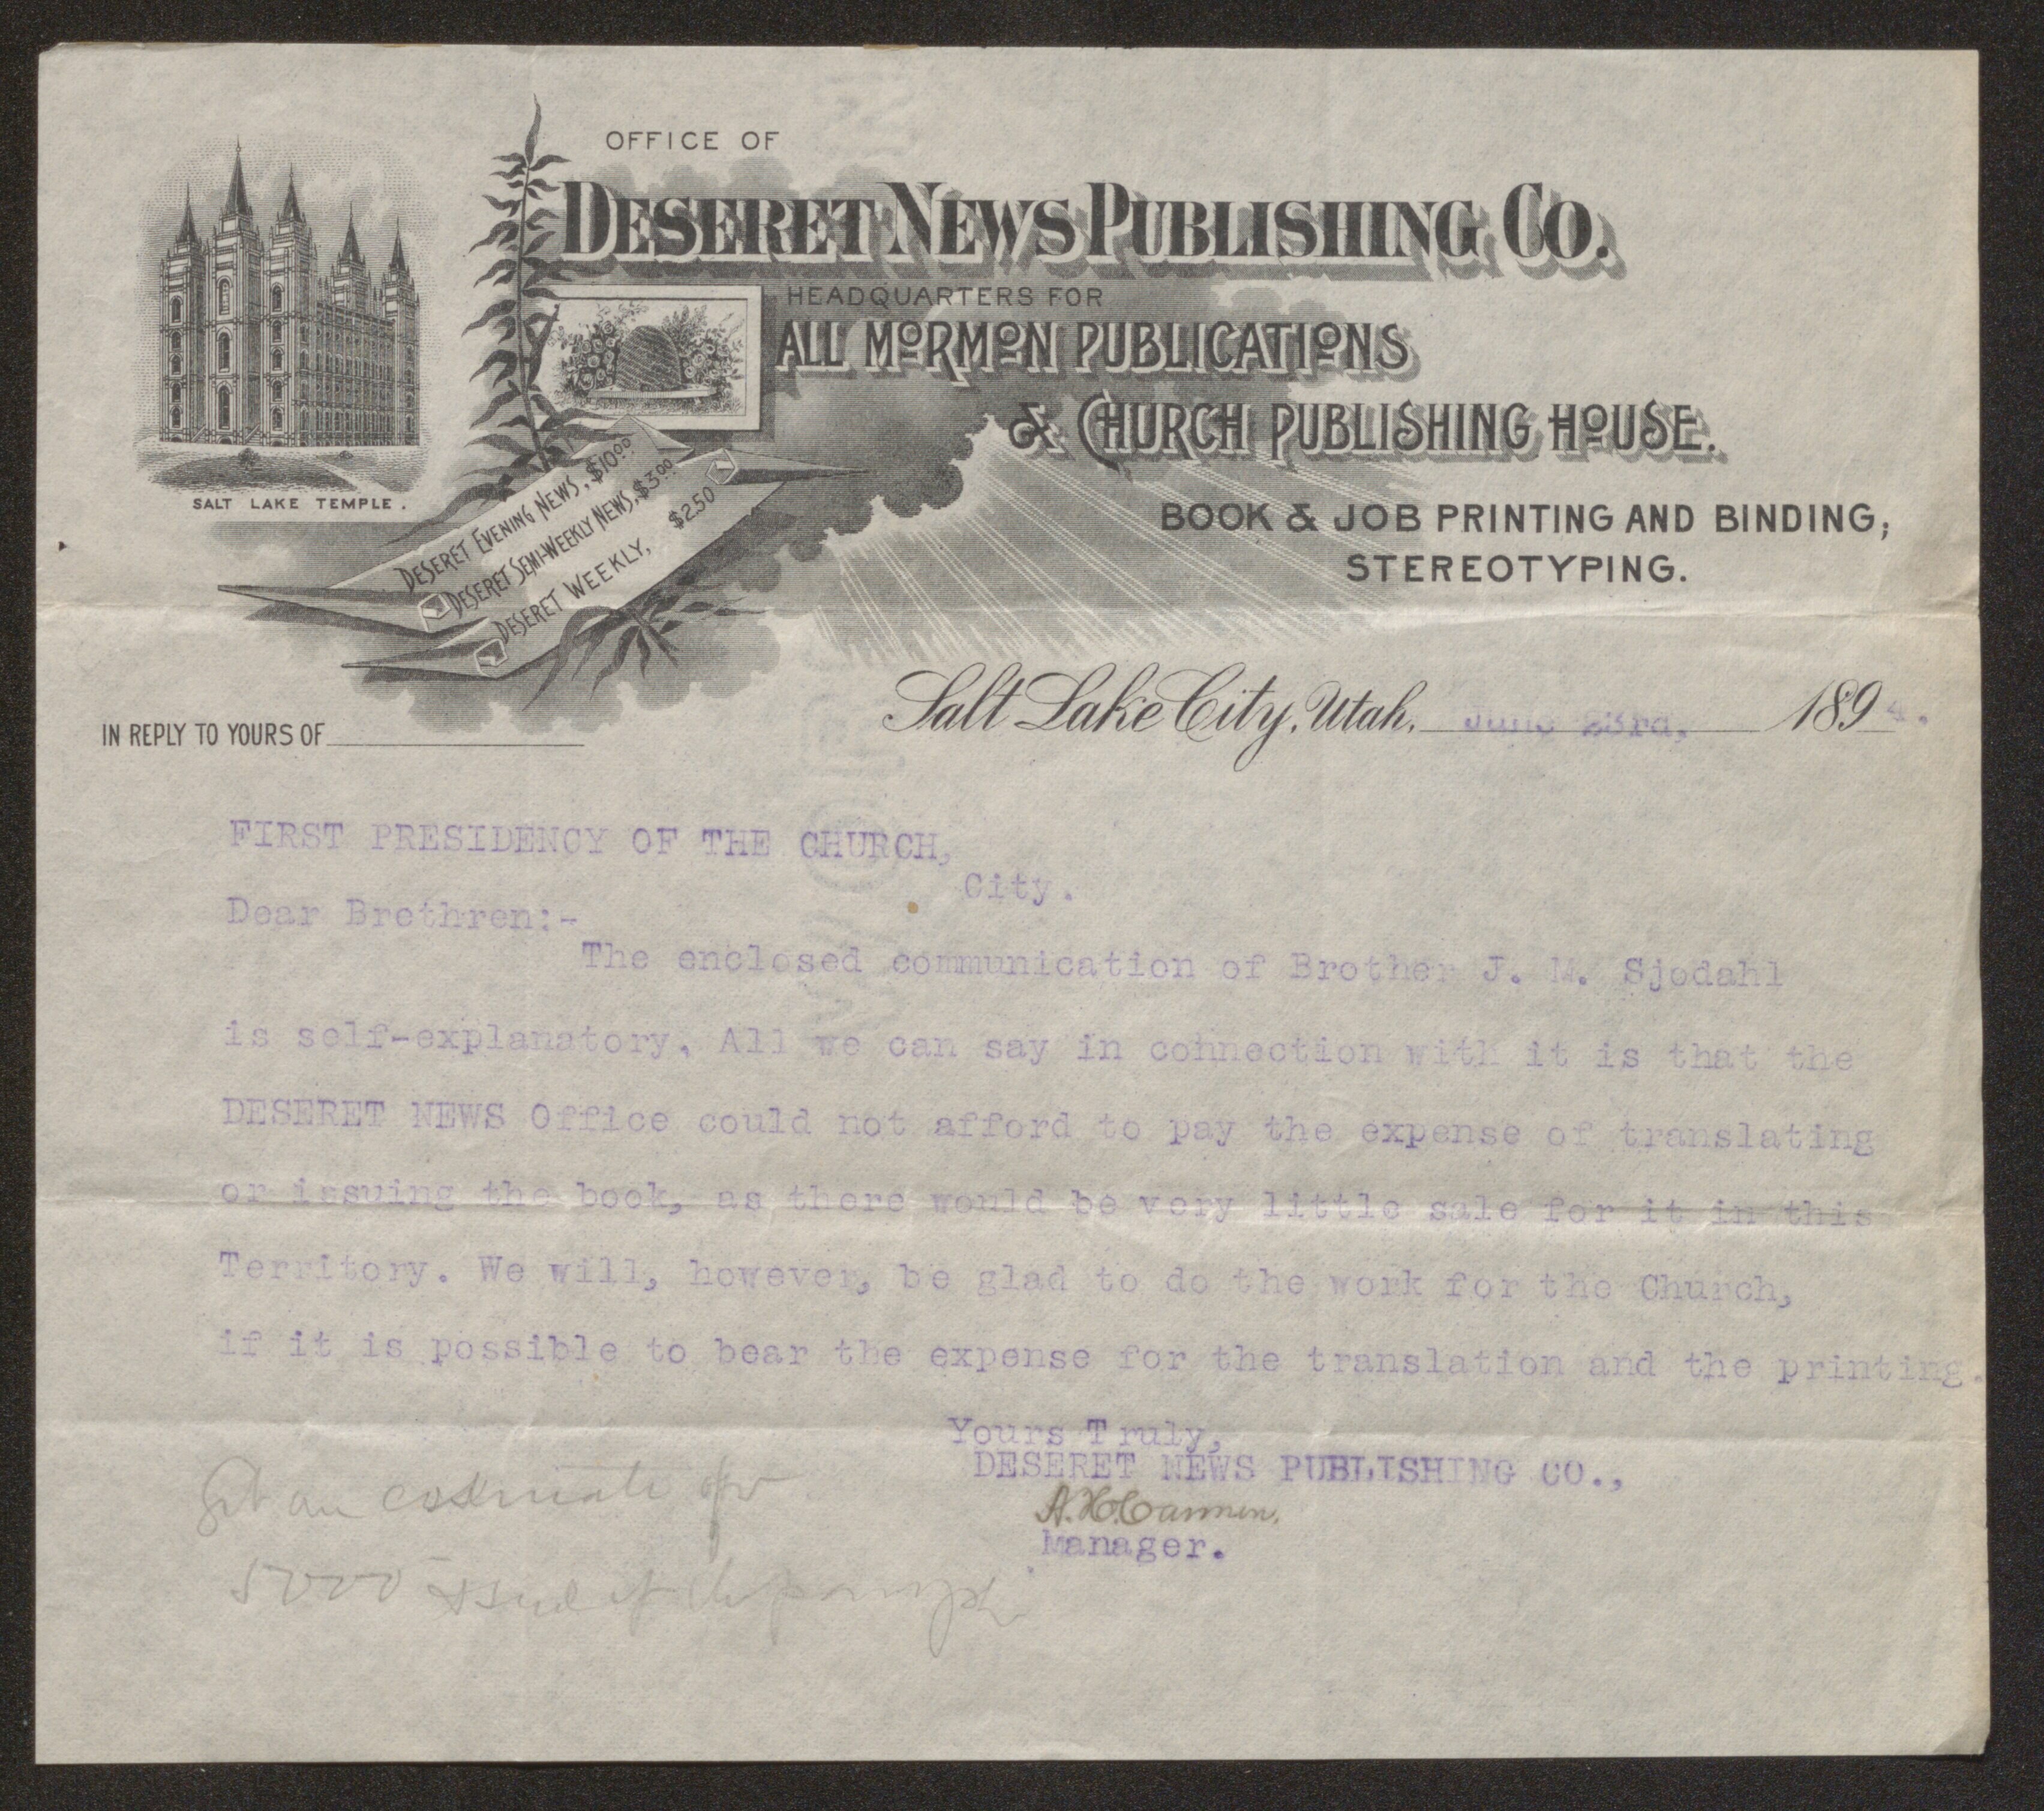 OFFICE OF
DESERET NEWS PUBLISHING CO.
HEADQUARTERS FOR
ALL MORMON PUBLICATIONS
& CHURCH PUBLISHING HOUSE.
BOOK & JOB PRINTING AND BINDING;
STEREOTYPING.
SALT LAKE TEMPLE.
DESERET EVENING NEWS, $10.00
DESERET SEMI-WEEKLY NEWS, $3.00
DESERET WEEKLY, $2.50
Salt Lake City, Utah, June 23rd, 1894.
IN REPLY TO YOURS OF
FIRST PRESIDENCY OF THE CHURCH,
City.
Dear Brethren:-
The enclosed communication of Brother J. M. Sjodahl
is self-explanatory. All we can say in connection with it is that the
DESERET NEWS Office could not afford to pay the expense of translating
or issuing the book, as there would be very little sale for it in this
Territory. We will, however, be glad to do the work for the Church,
if it is possible to bear the expense for the translation and the printing.
Yours Truly,
DESERET NEWS PUBLISHING CO.,
A. H. Cannon,
Manager.
Get an estimate for
5000